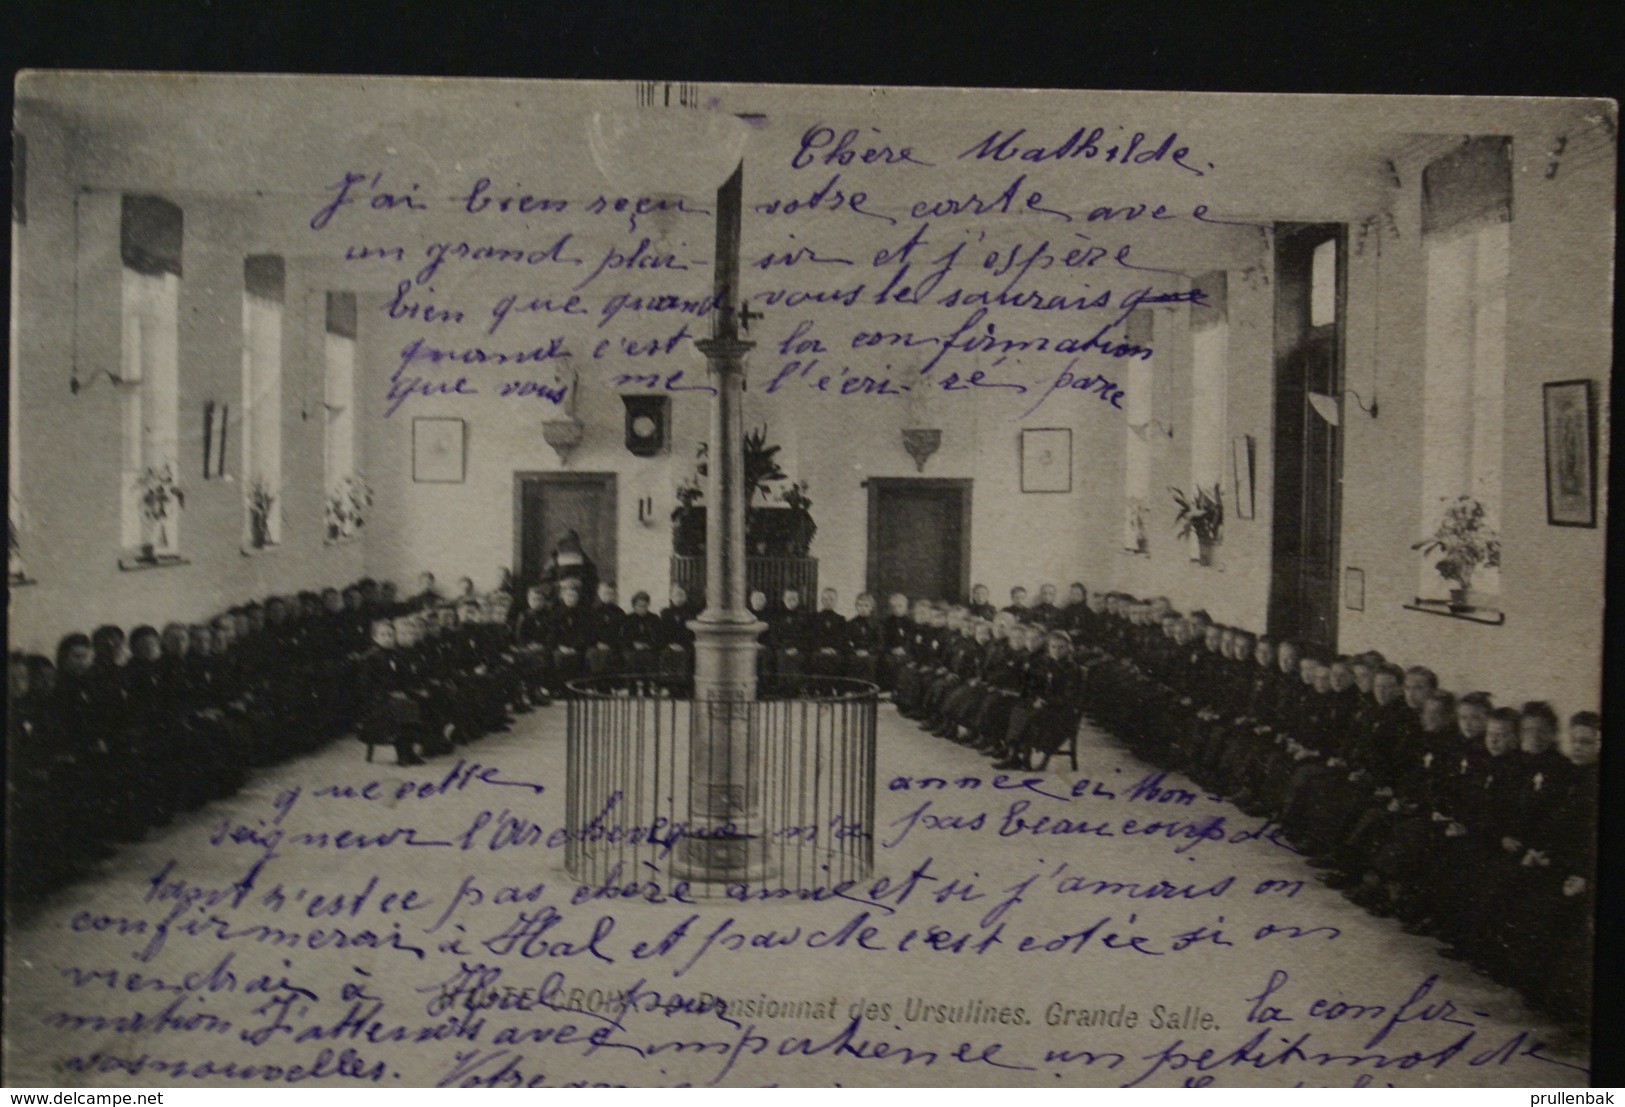 Chère Mathilde.
J'ai bien reçu votre carte avec
un grand plai- sir et j'espère
bien que quand vous le saurais que
quand c'est la confirmation
que vous me l'écri- ré parce
que cette année ci Mon-
seigneur l'Archevêque n'a pas beaucoup de
tant n'est ce pas chère amie et si j'amais on
confirmerai à Hal et pas de c'est cotée si on
viendrai à Hal pour la confir-
HAUTE-CROIX. Pensionnat des Ursulines. Grande Salle.
mation J'attends avec impatience un petit mot de
vos nouvelles. Votre amie
delcampe.net
prullenbak